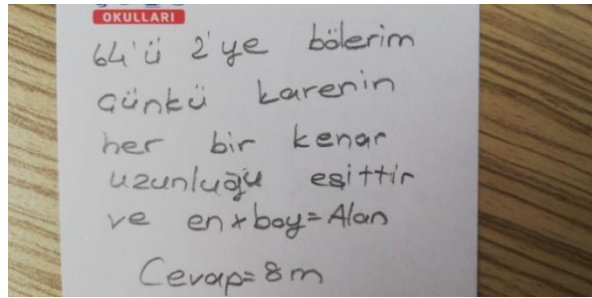 OKULLARI
64'ü 2'ye bölerim
günkü karenin
her bir kenar
uzunluğu eşittir
ve en x boy = Alan
Cevap = 8 m